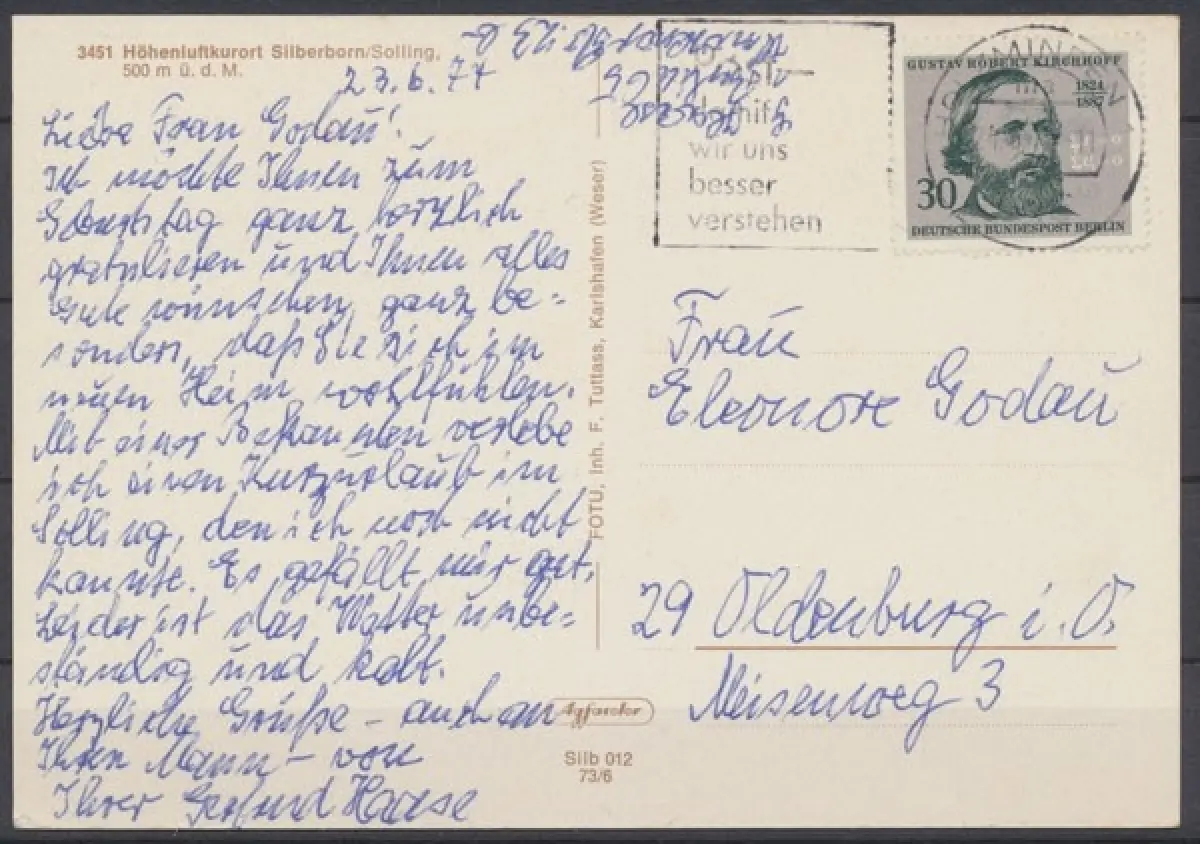 3451 Höhenluftkurort Silberborn/Solling,
500 m ü. d. M.
23.6.74
Liebe Frau Godau!
Ich möchte Ihnen zum
Geburtstag ganz herzlich
gratulieren und Ihnen alles
Gute wünschen, ganz be=
sonders, daß Sie sich im
neuen Heim wohlfühlen.
Mit einer Bekannten verlebe
ich einen Kurzurlaub im
Solling, den ich noch nicht
kannte. Es gefällt mir gut,
Leider ist das Wetter unbe=
ständig und kalt.
Herzliche Grüße – auch an
Ihren Mann – von
Ihrer Gertrud Haase
FOTU, Inh. F. Tuttass, Karlshafen (Weser)
Agfacolor
Silb 012
73/6
damit
wir uns
besser
verstehen
GUSTAV ROBERT KIRCHHOFF
1824
1887
30
DEUTSCHE BUNDESPOST BERLIN
Frau
Eleonore Godau
29 Oldenburg i. O.
Meisenweg 3